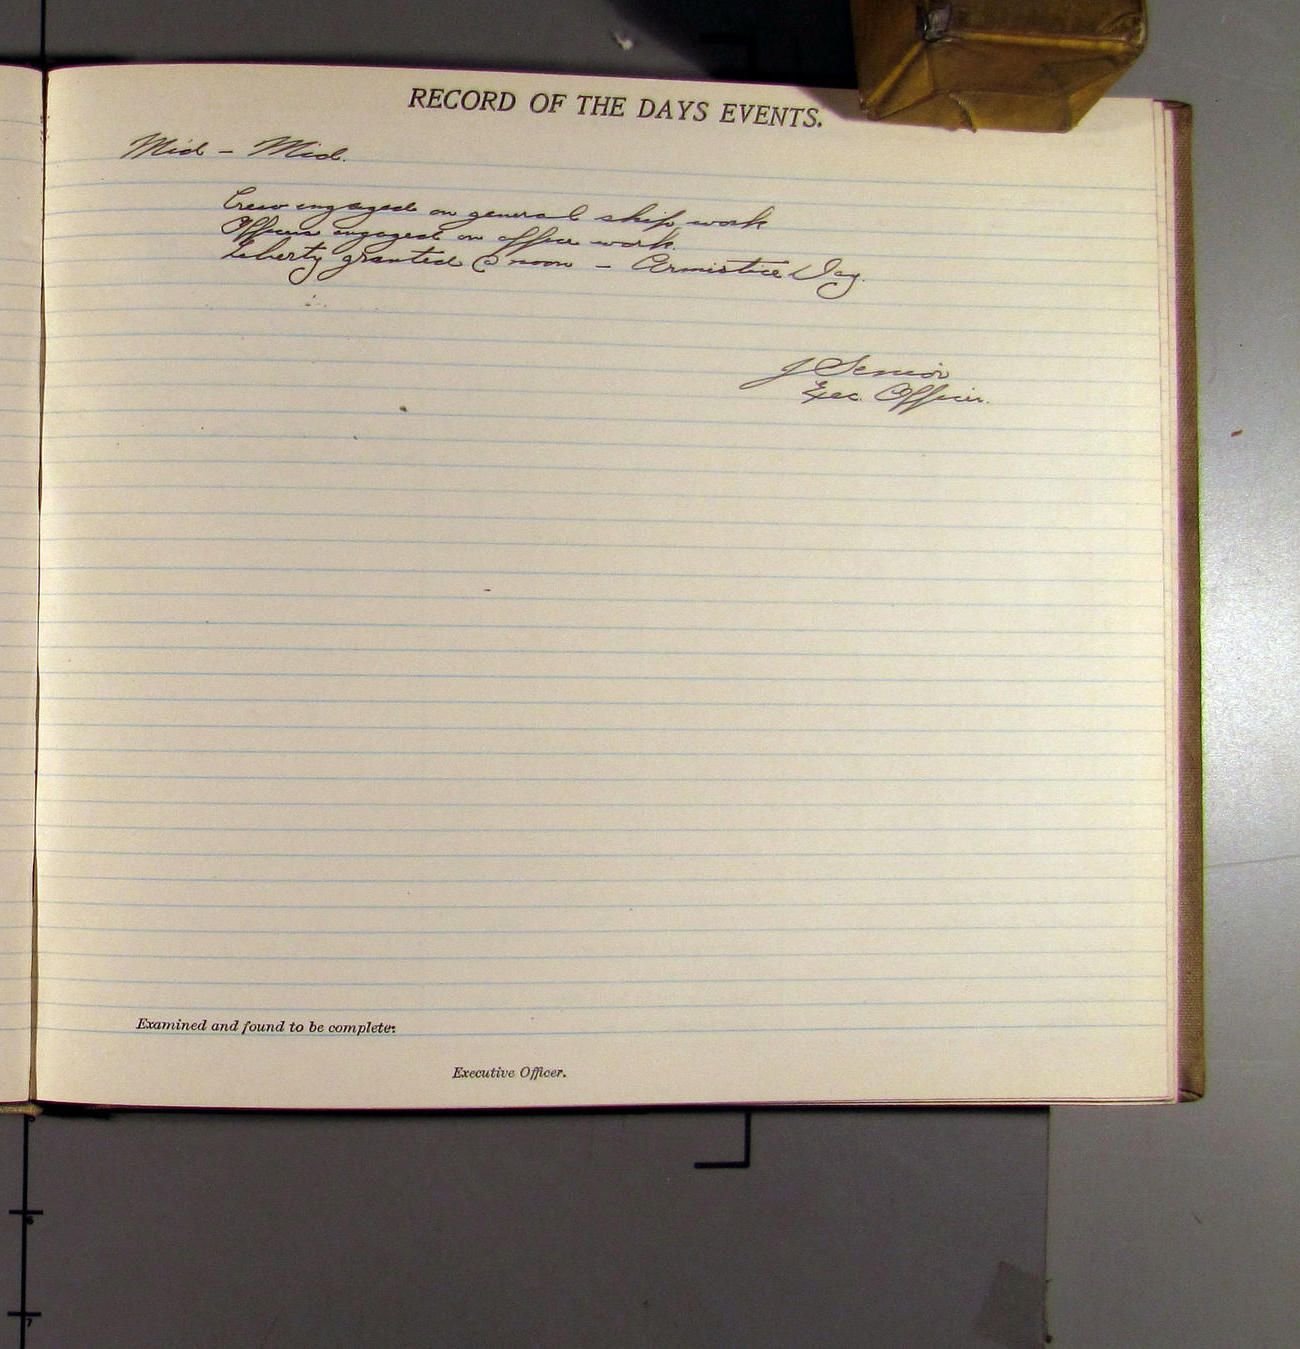 RECORD OF THE DAYS EVENTS.
Mid - Mid.
Crew engaged on general ship work
Officers engaged on office work.
Liberty granted @ noon - Armistice Day.
J Senior
Exec. Officer.
Examined and found to be complete:
Executive Officer.
6
7